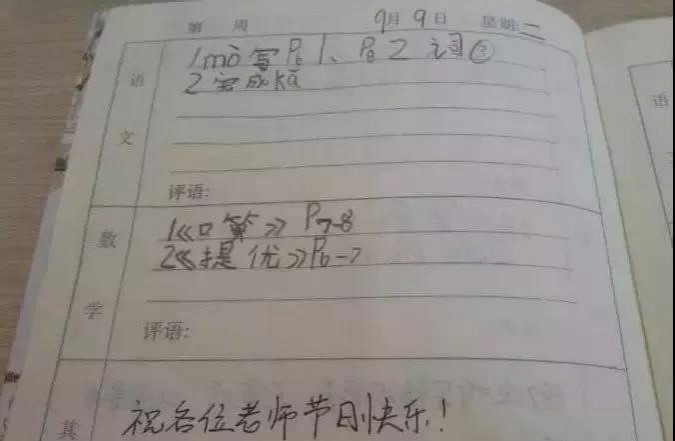 第 周 9月9日 星期:二
语文
1mò写P6 1、P8 2 词③
2完成kǎ
评语:
数学
1《口算》P7-8
2《提优》P6-7
评语:
其
祝各位老师节日快乐!
语